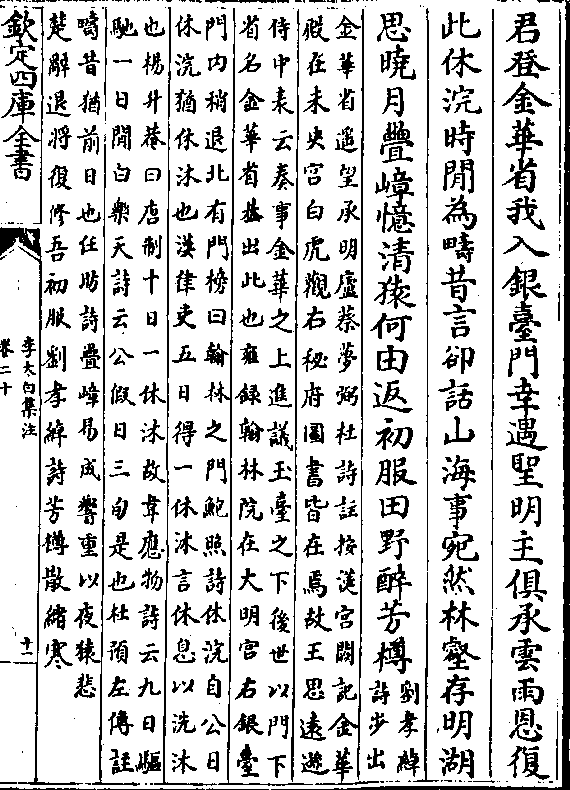 君登金華省我入銀臺門幸遇聖明主俱承雲雨恩復
此休浣時閒為疇昔言卻話山海事宛然林壑存明湖
思曉月疊嶂憶清猿何由返初服田野醉芳樽
劉孝綽
詩步出
金華省遥望承明廬蔡夢弼杜詩註按漢宫闕記金華
殿在未央宫白虎觀右秘府圖書皆在焉故王思遠遜
侍中表云奏事金華之上進議玉臺之下後世以門下
省名金華省盖出此也雍録翰林院在大明宫右銀臺
門内稍退北有門榜曰翰林之門鮑照詩休浣自公日
休浣猶休沐也漢律吏五日得一休沐言休息以洗沐
也楊升菴曰唐制十日一休沐故韋應物詩云九日驅
馳一日閒白樂天詩云公假日三旬是也杜預左傳註
疇昔猶前日也任昉詩疊嶂易成響重以夜猿悲
楚辭退將復修吾初服劉孝綽詩芳樽散緒寒
欽定四庫全書
李太白集注
卷二十
十一